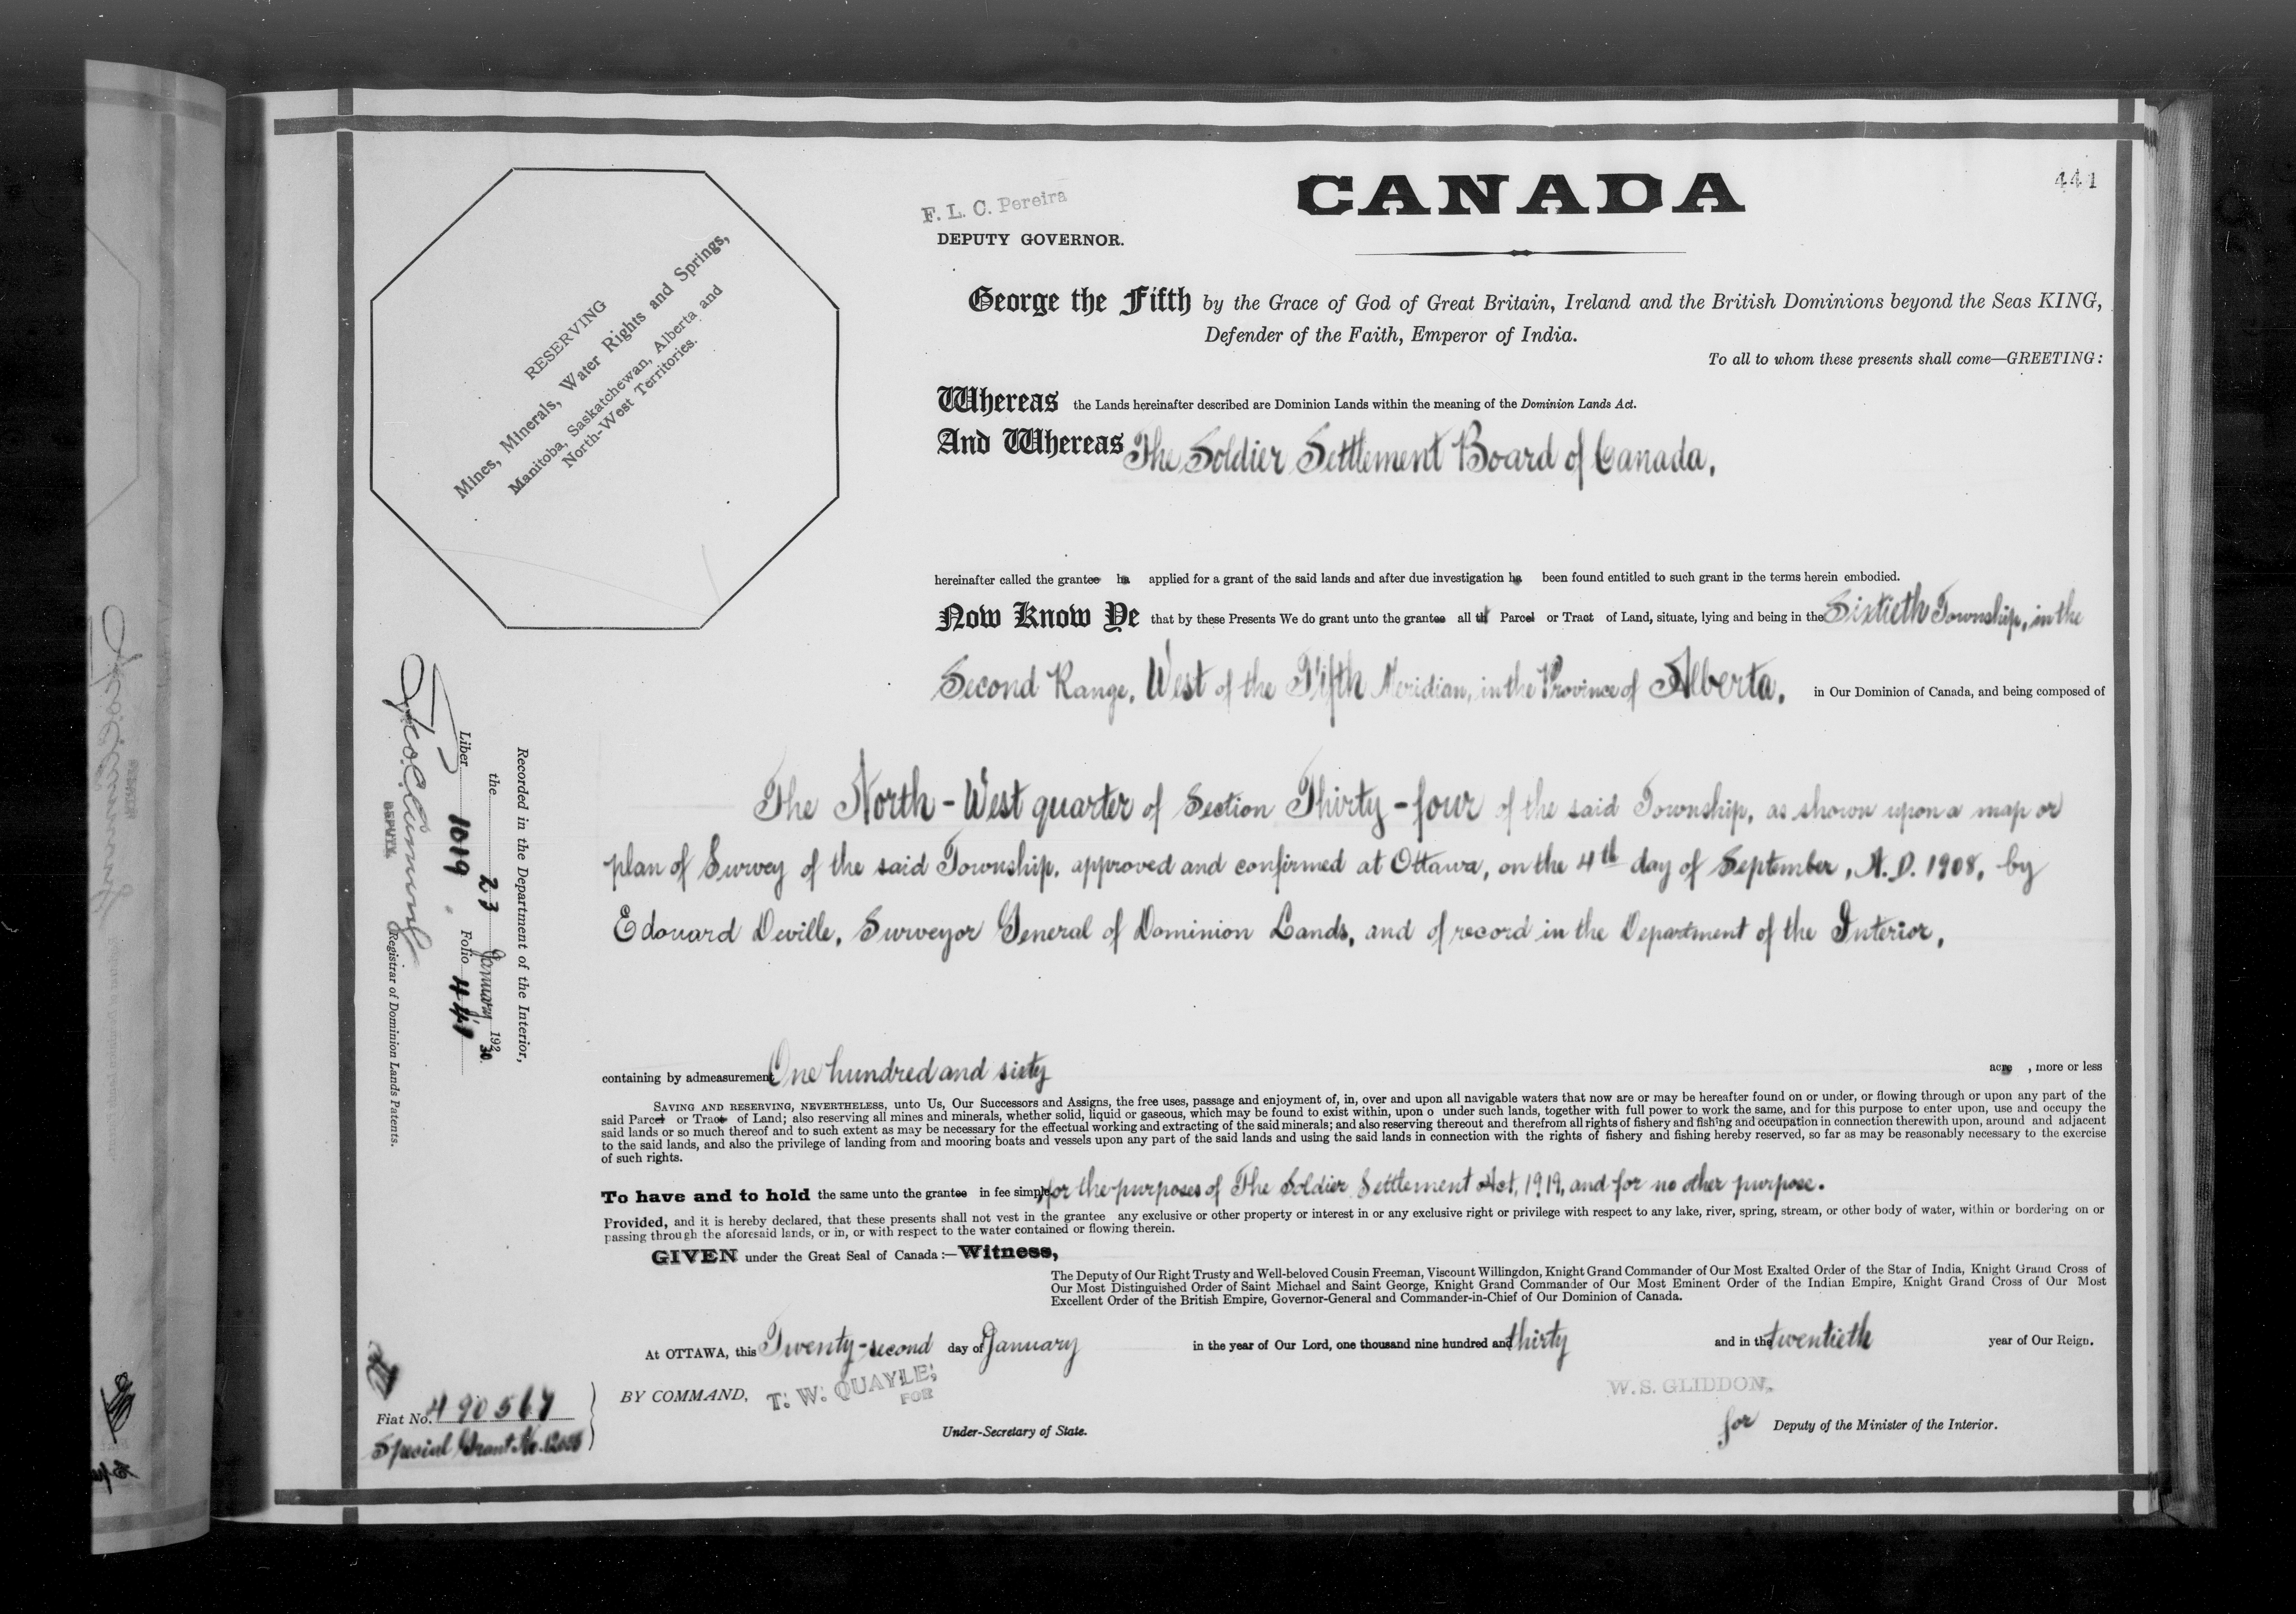 441
F. L. C. Pereira
DEPUTY GOVERNOR.
CANADA
RESERVING
Mines, Minerals, Water Rights and Springs,
Manitoba, Saskatchewan, Alberta and
North-West Territories.
George the Fifth by the Grace of God of Great Britain, Ireland and the British Dominions beyond the Seas KING,
Defender of the Faith, Emperor of India.
To all to whom these presents shall come—GREETING:
Whereas the Lands hereinafter described are Dominion Lands within the meaning of the Dominion Lands Act.
And Whereas The Soldier Settlement Board of Canada,
hereinafter called the grantee ha applied for a grant of the said lands and after due investigation ha been found entitled to such grant in the terms herein embodied.
Now Know Ye that by these Presents We do grant unto the grantee all th Parcel or Tract of Land, situate, lying and being in the Sixtieth Township, in the
Second Range, West of the Fifth Meridian, in the Province of Alberta, in Our Dominion of Canada, and being composed of
The North-West quarter of Section Thirty-four of the said Township, as shown upon a map or
plan of Survey of the said Township, approved and confirmed at Ottawa, on the 4th day of September, A.D. 1908, by
Edouard Deville, Surveyor General of Dominion Lands, and of record in the Department of the Interior,
containing by admeasurement One hundred and sixty acre , more or less
SAVING AND RESERVING, NEVERTHELESS, unto Us, Our Successors and Assigns, the free uses, passage and enjoyment of, in, over and upon all navigable waters that now are or may be hereafter found on or under, or flowing through or upon any part of the
said Parcel or Tract of Land; also reserving all mines and minerals, whether solid, liquid or gaseous, which may be found to exist within, upon o under such lands, together with full power to work the same, and for this purpose to enter upon, use and occupy the
said lands or so much thereof and to such extent as may be necessary for the effectual working and extracting of the said minerals; and also reserving thereout and therefrom all rights of fishery and fishing and occupation in connection therewith upon, around and adjacent
to the said lands, and also the privilege of landing from and mooring boats and vessels upon any part of the said lands and using the said lands in connection with the rights of fishery and fishing hereby reserved, so far as may be reasonably necessary to the exercise
of such rights.
To have and to hold the same unto the grantee in fee simple for the purposes of The Soldier Settlement Act, 1919, and for no other purpose.
Provided, and it is hereby declared, that these presents shall not vest in the grantee any exclusive or other property or interest in or any exclusive right or privilege with respect to any lake, river, spring, stream, or other body of water, within or bordering on or
passing through the aforesaid lands, or in, or with respect to the water contained or flowing therein.
GIVEN under the Great Seal of Canada:—Witness,
The Deputy of Our Right Trusty and Well-beloved Cousin Freeman, Viscount Willingdon, Knight Grand Commander of Our Most Exalted Order of the Star of India, Knight Grand Cross of
Our Most Distinguished Order of Saint Michael and Saint George, Knight Grand Commander of Our Most Eminent Order of the Indian Empire, Knight Grand Cross of Our Most
Excellent Order of the British Empire, Governor-General and Commander-in-Chief of Our Dominion of Canada.
At OTTAWA, this Twenty-second day of January in the year of Our Lord, one thousand nine hundred and thirty and in the twentieth year of Our Reign.
BY COMMAND, T. W. QUAYLE,
FOR
Under-Secretary of State.
W. S. GLIDDON,
for Deputy of the Minister of the Interior.
Recorded in the Department of the Interior,
the 23 January 1930.
Liber 1019 Folio 441
DEPUTY Registrar of Dominion Lands Patents.
Fiat No. 490567
Special Grant No.